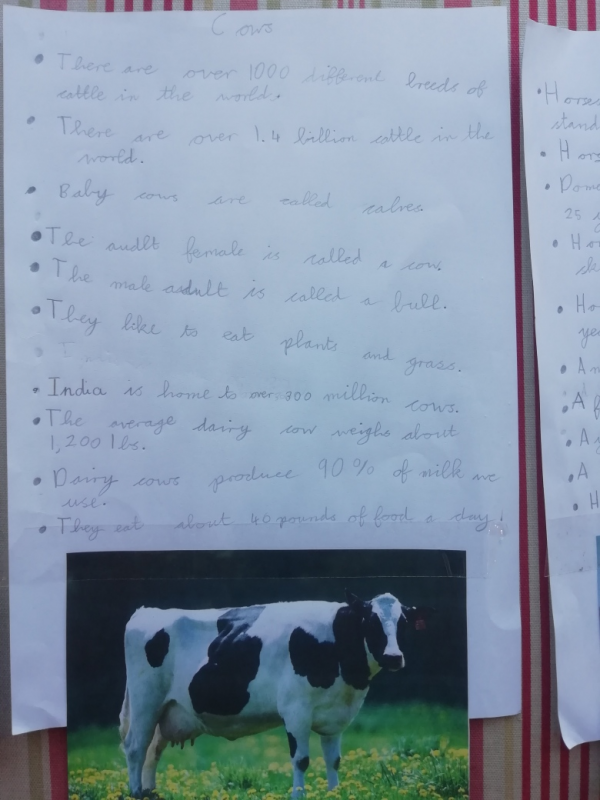 Cows
• There are over 1000 different breeds of
cattle in the world.
• There are over 1.4 billion cattle in the
world.
• Baby cows are called calves.
• The audlt famale is called a cow.
• The male adult is called a bull.
• They like to eat plants and grass.
• India is home to over 300 million cows.
• The average dairy cow weighs about
1,200 lbs.
• Dairy cows produce 90% of milk we
use.
• They eat about 40 pounds of food a day.
• Horses
stand
• Hors
• Dome
25
• Ho
• Ho
• A
• A f
• A
• A
• H